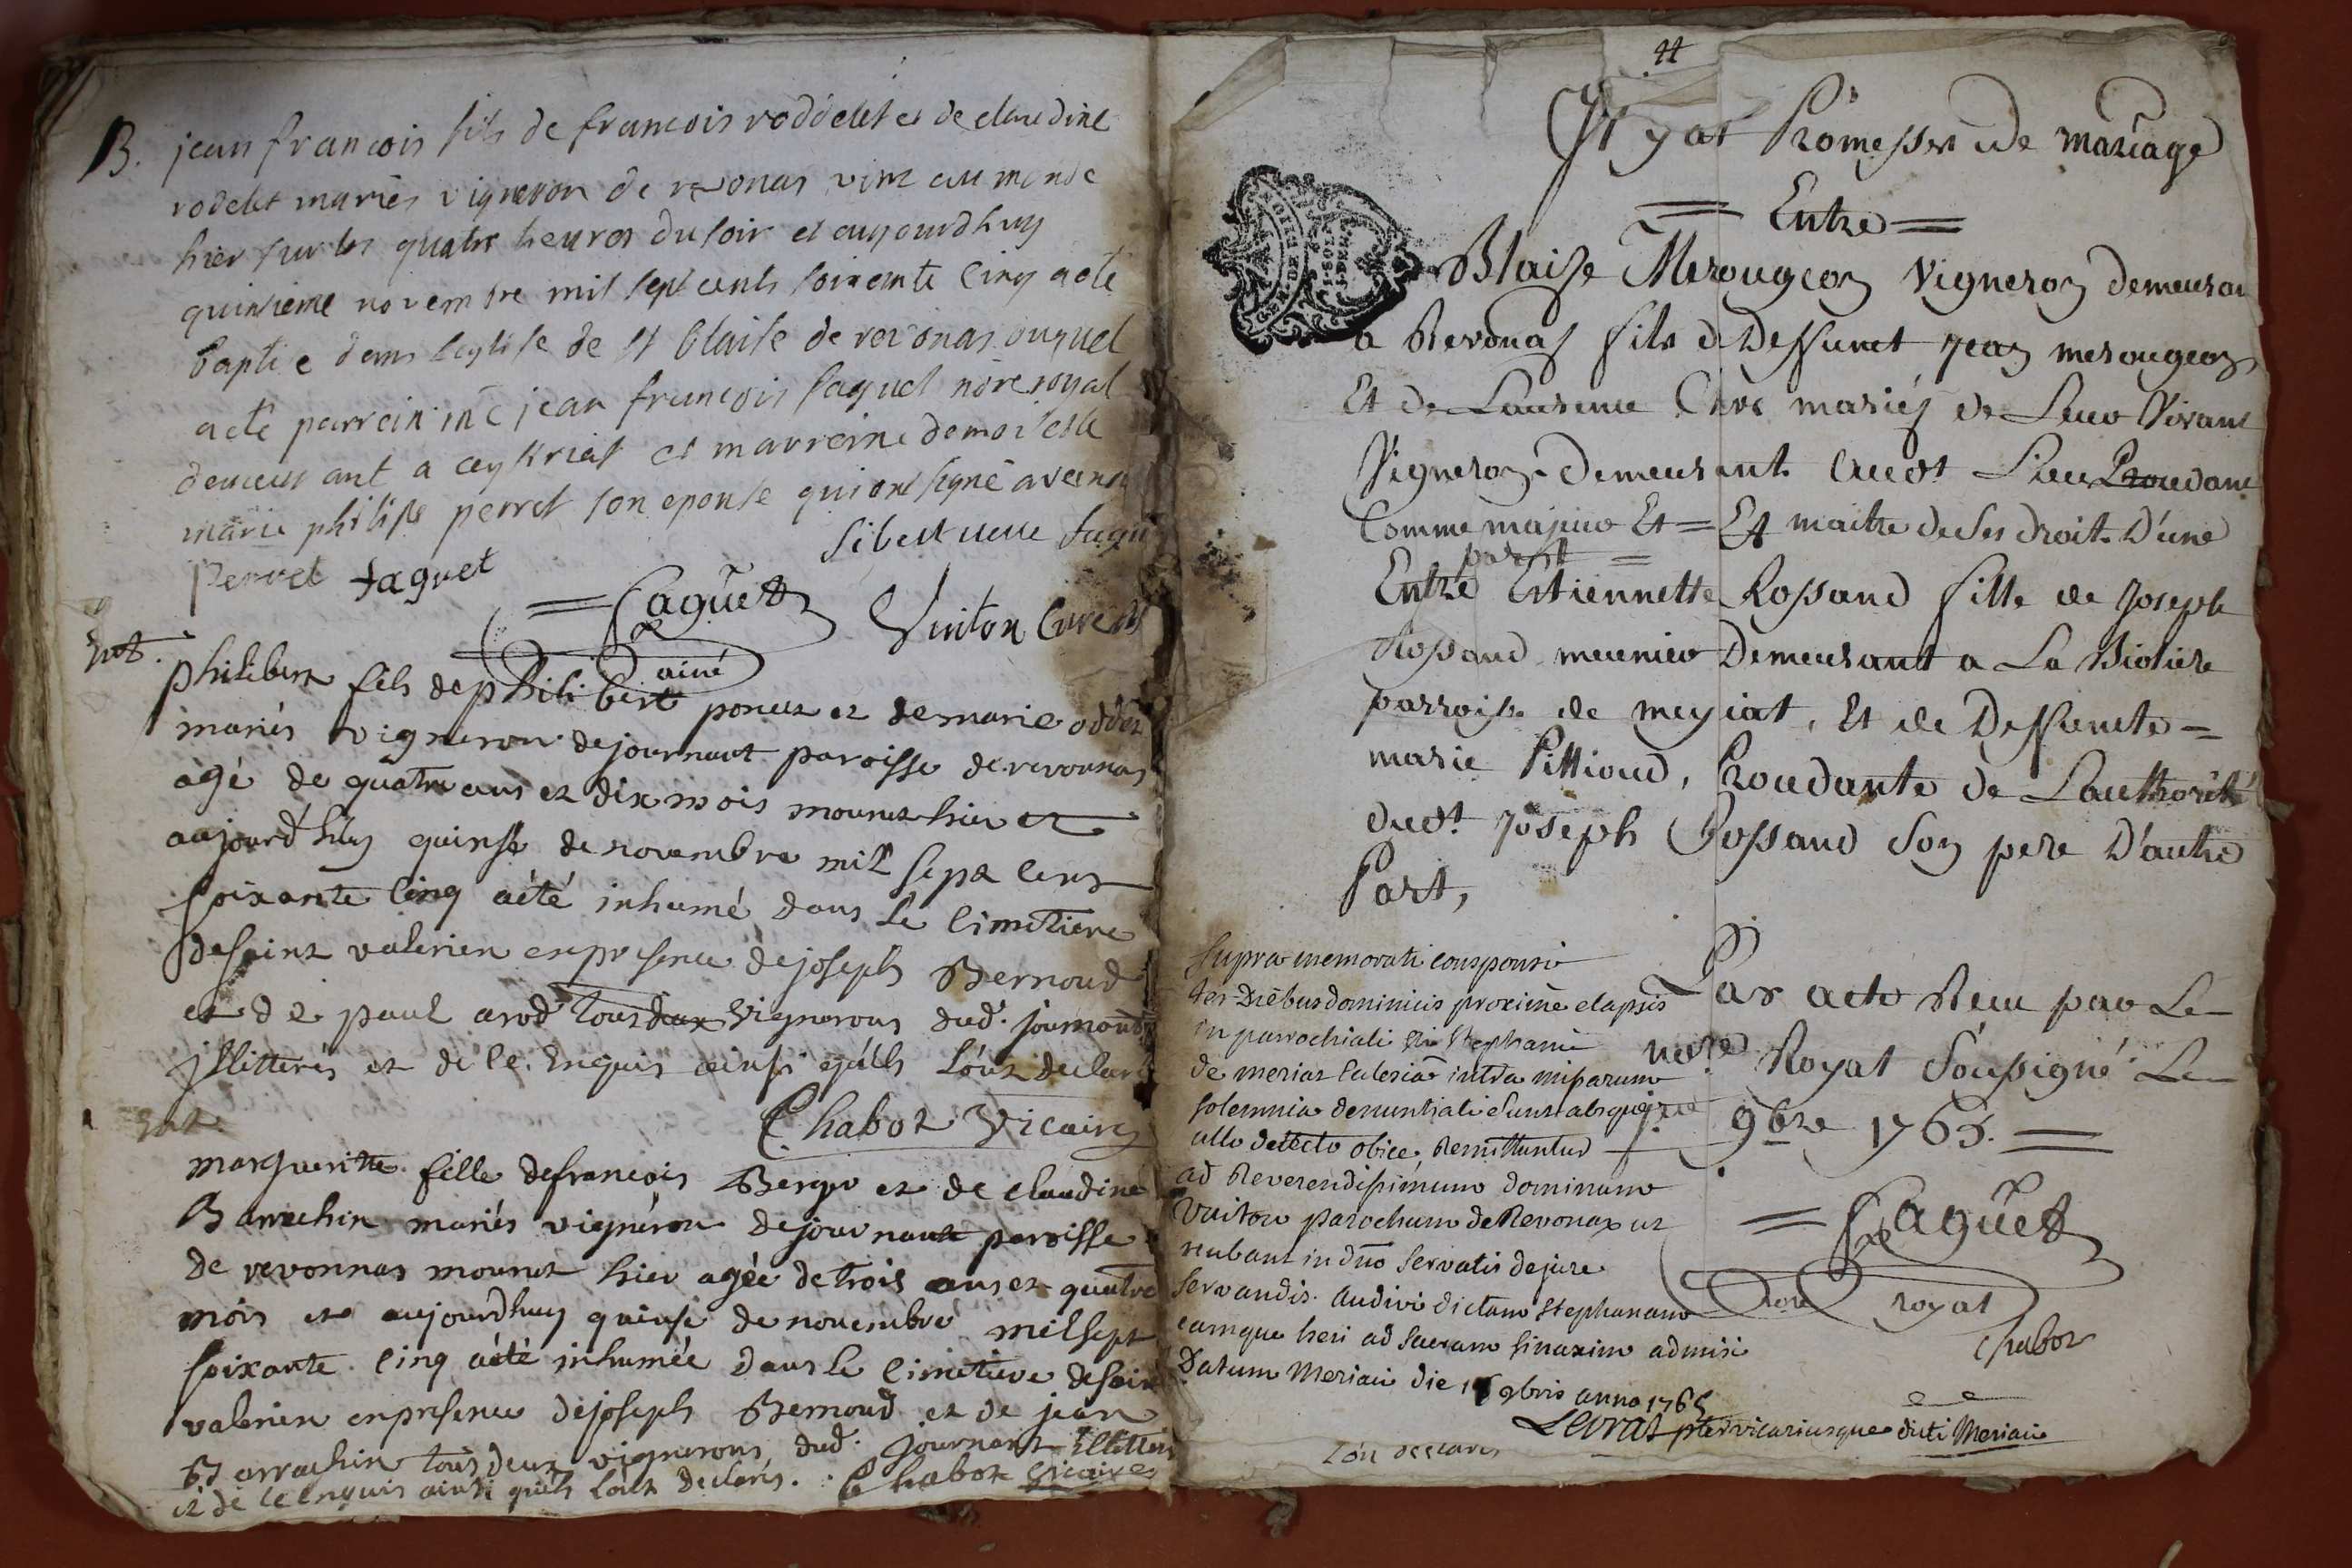 B. jean francois fils de francois roddelet et de claudine
rodelet mariés vigneron de revonas vint au monde
hier sur les quatre heures du soir et aujourdhuy
quinsieme novembre mil sept cents soixante cinq a eté
baptise dans leglise de st blaise de revonas auquel
a eté parrein me jean francois faguet nore royal
demeurant a ceyseriat et marreine demoiselle
marie philipe perret son epouse qui ont signé avec
perret faguet
Faguet
ainé
Vuiton Curé
Ent.
philibert fils de philibert poncet et de marie oddet
mariés vigneron de journant paroisse de revonnas
agé de quatre ans et dix mois mourut hier et
aujourd'huy quinse de novembre mil sept cent
soixante cinq a été inhumé dans le cimetiere
de saint valerien en presence de joseph Bernoud
et de paul arod tous deux vignerons dud. journant
jllitterés et de ce enquis ainsi qu'ils l'ont declaré
Chabot Vicaire
Ent.
margueritte fille de francois Berger et de claudine
Barrachin mariés vigneron de journant paroisse
de revonnas mourut hier agée de trois ans et quatre
mois et aujourdhuy quinse de novembre mil sept
soixante cinq a été inhumée dans le cimetiere de saint
valerien en presence de joseph Bernoud et de jean
Barrachin tous deux vignerons dud. journant illitterés
et de ce enquis ainsi qu'ils l'ont declarés. Chabot vicaire
Il y at Promesses de mariage
= Entre =
Blaise Merougeon Vigneron demeurant
a Revonas fils de Deffunct jean merougeon
Et de Laurence mariés de Leur Vivant
Vigneron Demeurant audt Lieu Proudant
Comme majeur Et = Et maitre de ses droit D'une
part =
Entre Estiennette Rossand fille de Joseph
Rossand meunier Demeurant a La
parroisse de meyriat, Et de Deffuncte =
marie Pittioud, Proudante de Lauthorité
dudt Joseph Rossand Son pere D'autre
Part,
Par acte Receu par Le
nore Royal Soussigné Le
9bre 1765. =
= Faguet
nore royal
Chabot
supra memorati consponsi
ter Diebus dominicis proxime elapsis
in parrochiali sti stephani
de meriat Ecclesia intra missarum
solemnia denuntiati sunt absque
ullo detecto obice, Remittuntur
ad Reverendissimum dominum
Vuiton parochum de Revonax ut
nubant in dno servatis de jure
servandis. Audivi dictam stephanam
eamque heri ad sacram sinaxim admisi
Datum Meriaci die 9bris anno 1765
Levrat pter vicariusque dicti Meriaci
l'on declarés